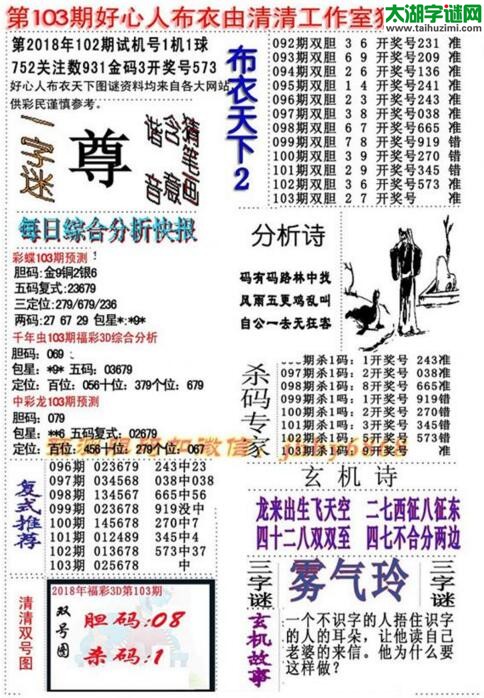 第103期好心人布衣由清清工作室
太湖字谜网
www.taihuzimi.com
第2018年102期试机号1机1球
752关注数931金码3开奖号573
好心人布衣天下图谜资料均来自各大网站
供彩民谨慎参考。
一字谜
尊
谐音 含意 猜生画
每日综合分析快报
彩蝶103期预测
胆码:金9铜2银6
五码复式:23679
三定位:279/679/236
两码:27 67 29 包星*:*9*
千年虫103期福彩3D综合分析
胆码:069
包星:*9* 五码:03679
定位:百位:056十位:379个位:679
中彩龙103期预测
胆码:079
包星:**6 五码复式:02679
定位:百位:456十位:279个位:067
布衣天下2
092期双胆 3 6 开奖号231 准
093期双胆 6 9 开奖号209 准
094期双胆 2 6 开奖号136 准
095期双胆 1 4 开奖号241 准
096期双胆 2 3 开奖号243 准
097期双胆 0 7 开奖号038 准
098期双胆 6 7 开奖号665 准
099期双胆 6 7 开奖号919 错
100期双胆 3 9 开奖号270 错
101期双胆 2 9 开奖号345 错
102期双胆 3 6 开奖号573 准
103期双胆 2 7 开奖号 准
分析诗
码有码路林中找
风雨五更鸡乱叫
自公一去无狂客
杀码专家
096期杀1码:1开奖号 243准
097期杀1码:2开奖号 038准
098期杀1码:8开奖号 665准
099期杀1码:1开奖号 919错
100期杀1码:3开奖号 270准
101期杀1码:3开奖号 345错
102期杀1码:3开奖号 573错
103期杀1码:9开奖号 准
复式推荐
096期 023679 243中23
097期 034568 038中038
098期 134567 665中56
099期 023678 919没中
100期 145678 270中7
101期 012489 345中4
102期 134578 573中37
103期 025678 中
玄机诗
龙来出生飞天空 二七西征八征东
四十二八双双至 四七不合分两边
清清双号图
2018年福彩3D第103期
双号图
胆码:08
杀码:1
三字谜
雾气玲
三字谜
玄机故事
一个不识字的人捂住识字
的人的耳朵,让他读自己
老婆的来信。他为什么要
这样做?